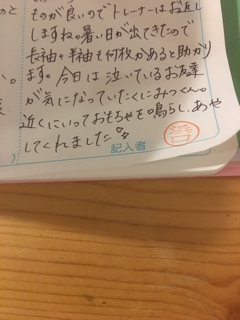 ものが良いのでトレーナーはお返し
しますね。暑い日が出てきたので
長袖+半袖も何枚かあると助かり
ます。今日は泣いているお友達
が気になっていたくにみつくん。
近くにいっておもちゃを鳴らし、あや
してくれました☆
記入者